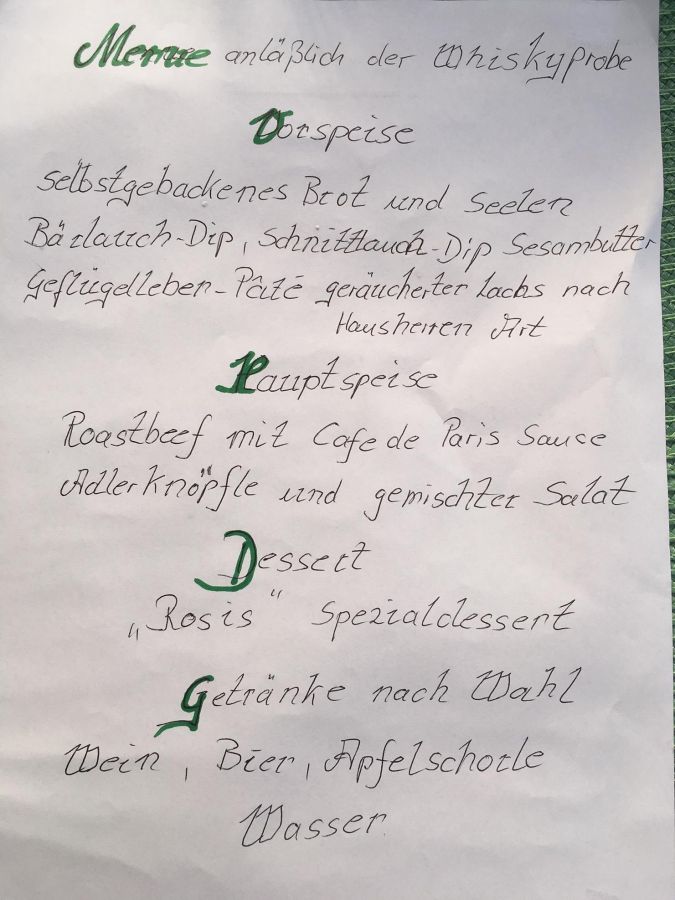 Menue anläßlich der Whiskyprobe
Vorspeise
selbstgebackenes Brot und Seelen
Bärlauch-Dip, Schnittlauch-Dip Sesambutter
Geflügelleber-Pâté geräucherter Lachs nach
Hausherren Art
Hauptspeise
Roastbeef mit Cafe de Paris Sauce
Adlerknöpfle und gemischter Salat
Dessert
„Rosis“ Spezialdessert
Getränke nach Wahl
Wein, Bier, Apfelschorle
Wasser